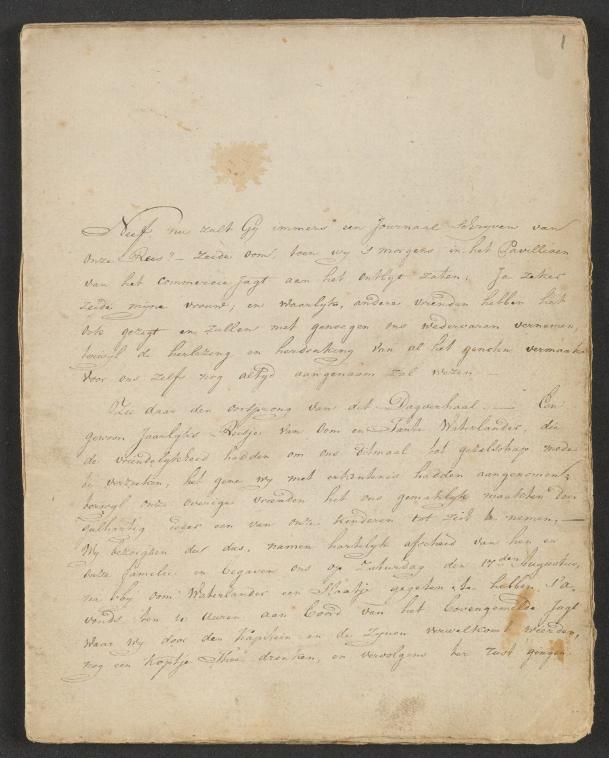 1
Neef nu zult Gy immers een Journaal schryven van
onze Reis? – zeide oom, toen wy 's morgens in het Pavillioen
van het commercie jagt aan het ontbyt zaten; Ja zeker
zeide myne vrouw; en waarlyk, andere vrienden hebben het
ook gezegt en zullen met genoegen ons wedervaren vernemen
terwyl de herlezing en herdenking van al het genoten vermaak
voor ons zelf nog altyd aangenaam zal wezen —
Zie daar den oorsprong van dit Dagverhaal. — Een
gewoon Jaarlyks Reisje van Oom en Tante Waterlander, die
de vriendelykheid hadden om ons ditmaal tot gezelschap mede
te verzoeken, het gene wy met erkentenis hadden aangenomen;
terwyl onze overige vrienden het ons gemaklyk maakten door
gulhartig ieder een van onze kinderen tot zich te nemen, —
Wy bezorgden dus, namen hartelyk afscheid van hen en
onze familie en begaven ons op Zaturdag den 17den Augustus,
na by oom Waterlander een gegeten te hebben s'a-
vonds ten 10 Uuren aan boord van het bovengemelde Jagt
waar wy door den Kapitein en de Zynen verwelkomt werden,
nog een Kopje Thee dronken, en vervolgens ter rust gongen